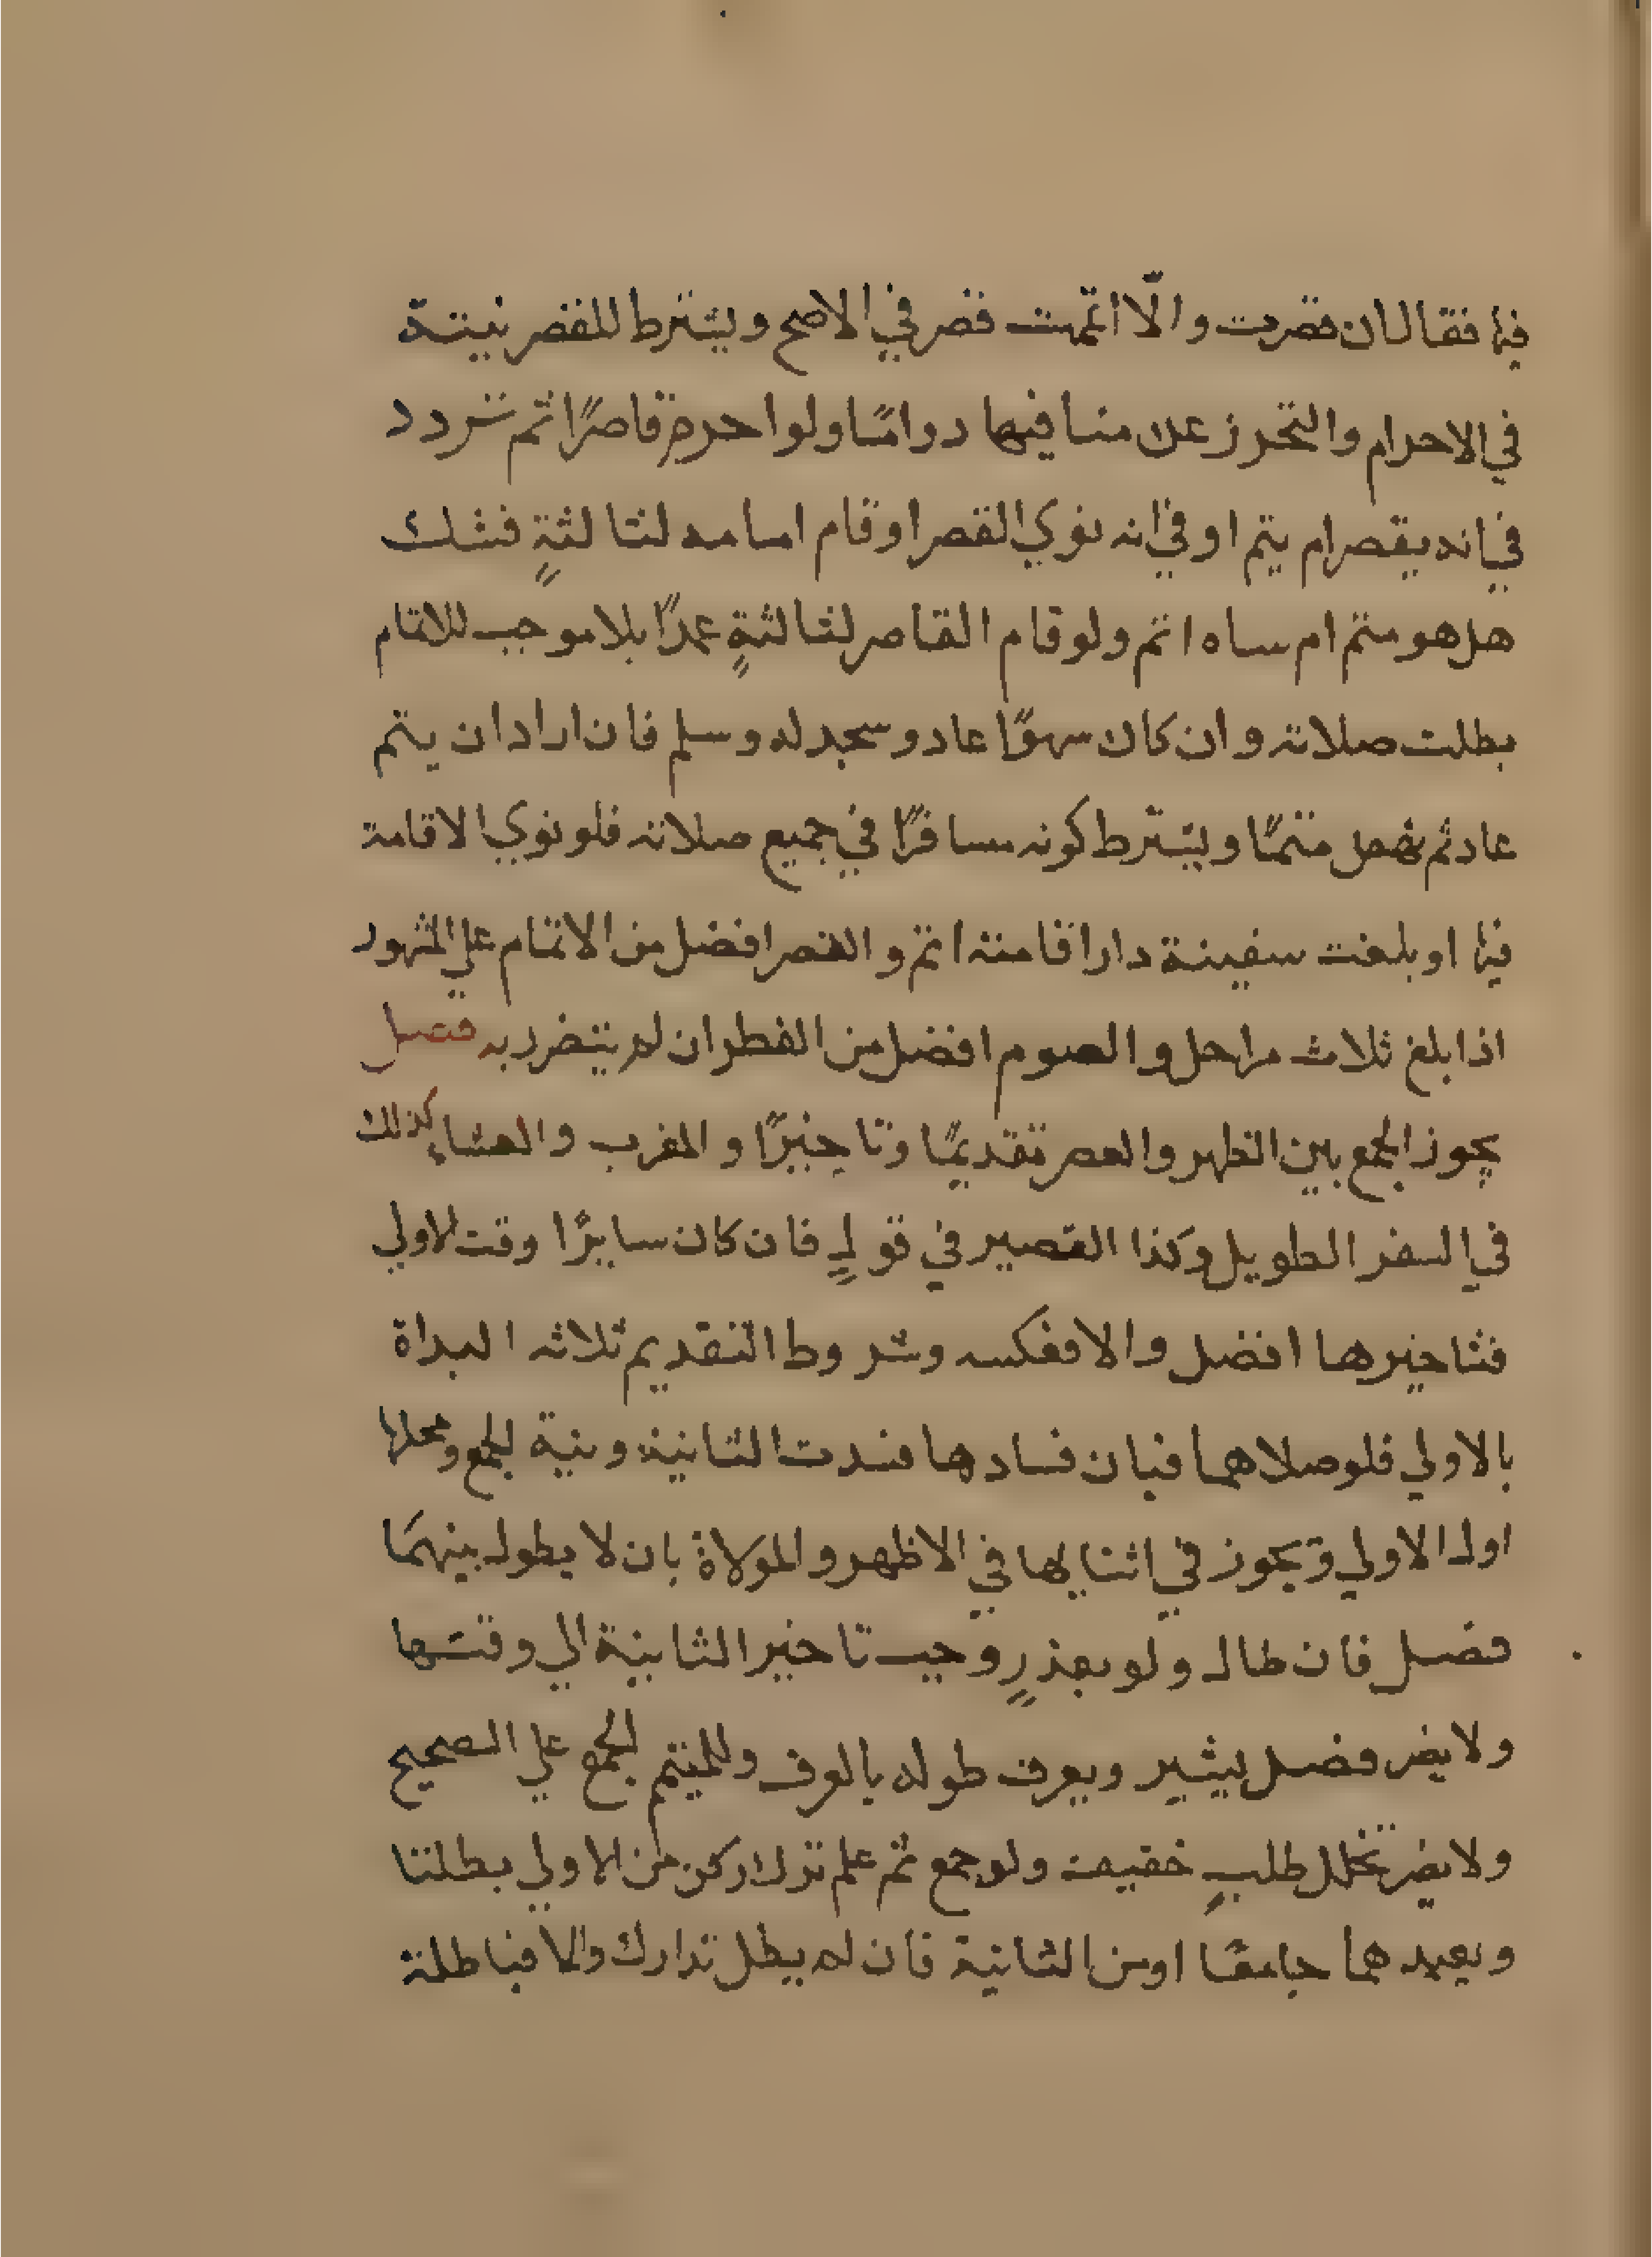 فيها فقال ان قصرت والّا اتممت قصر في الاصح ويشترط للقصر نيته
في الاحرام والتحرز عن منافيها دوامًا ولو احرم قاصرًا ثم تردد
في انه يقصر ام يتم او في انه نوي القصر او قام امامه لثالثةٍ فشك
هل هو متم ام ساه اتم ولو قام القاصر لثالثةٍ عمدًا بلا موجب للاتمام
بطلت صلاته وان كان سهوًا عاد وسجد له وسلم فان اراد ان يتم
عاد ثم نهض متمًا ويشترط كونه مسافرًا في جميع صلاته فلو نوي الاقامة
فيها او بلغت سفينة دار اقامته اتم والقصر افضل من الاتمام علي المشهور
اذا بلغ ثلاث مراحل والصوم افضل من الفطر ان لم يتضرر به فصل
يجوز الجمع بين الظهر والعصر تقديمًا وتاخيرًا والمغرب والعشاء كذلك
في السفر الطويل وكذا القصير في قولٍ فان كان سايرًا وقت الاولي
فتاخيرها افضل والا فعكسه وشروط التقديم ثلاثه البداة
بالاولي فلو صلاهما فبان فسادها فسدت الثانية ونية الجمع ومحلها
اول الاولي وتجوز في اثنايها في الاظهر والمولاة بان لا يطول بينهما
فصل فان طال ولو بعذرٍ وجب تاخير الثانية الي وقتها
ولا يضر فصل يسير ويعرف طوله بالعرف وللمتيمم الجمع علي الصحيح
ولا يضر تخلل طلبٍ خفيف ولو جمع ثم علم ترك ركن من الاولي بطلتا
ويعيدهما جامعًا او من الثانية فان لم يطل تدارك والا فباطلة